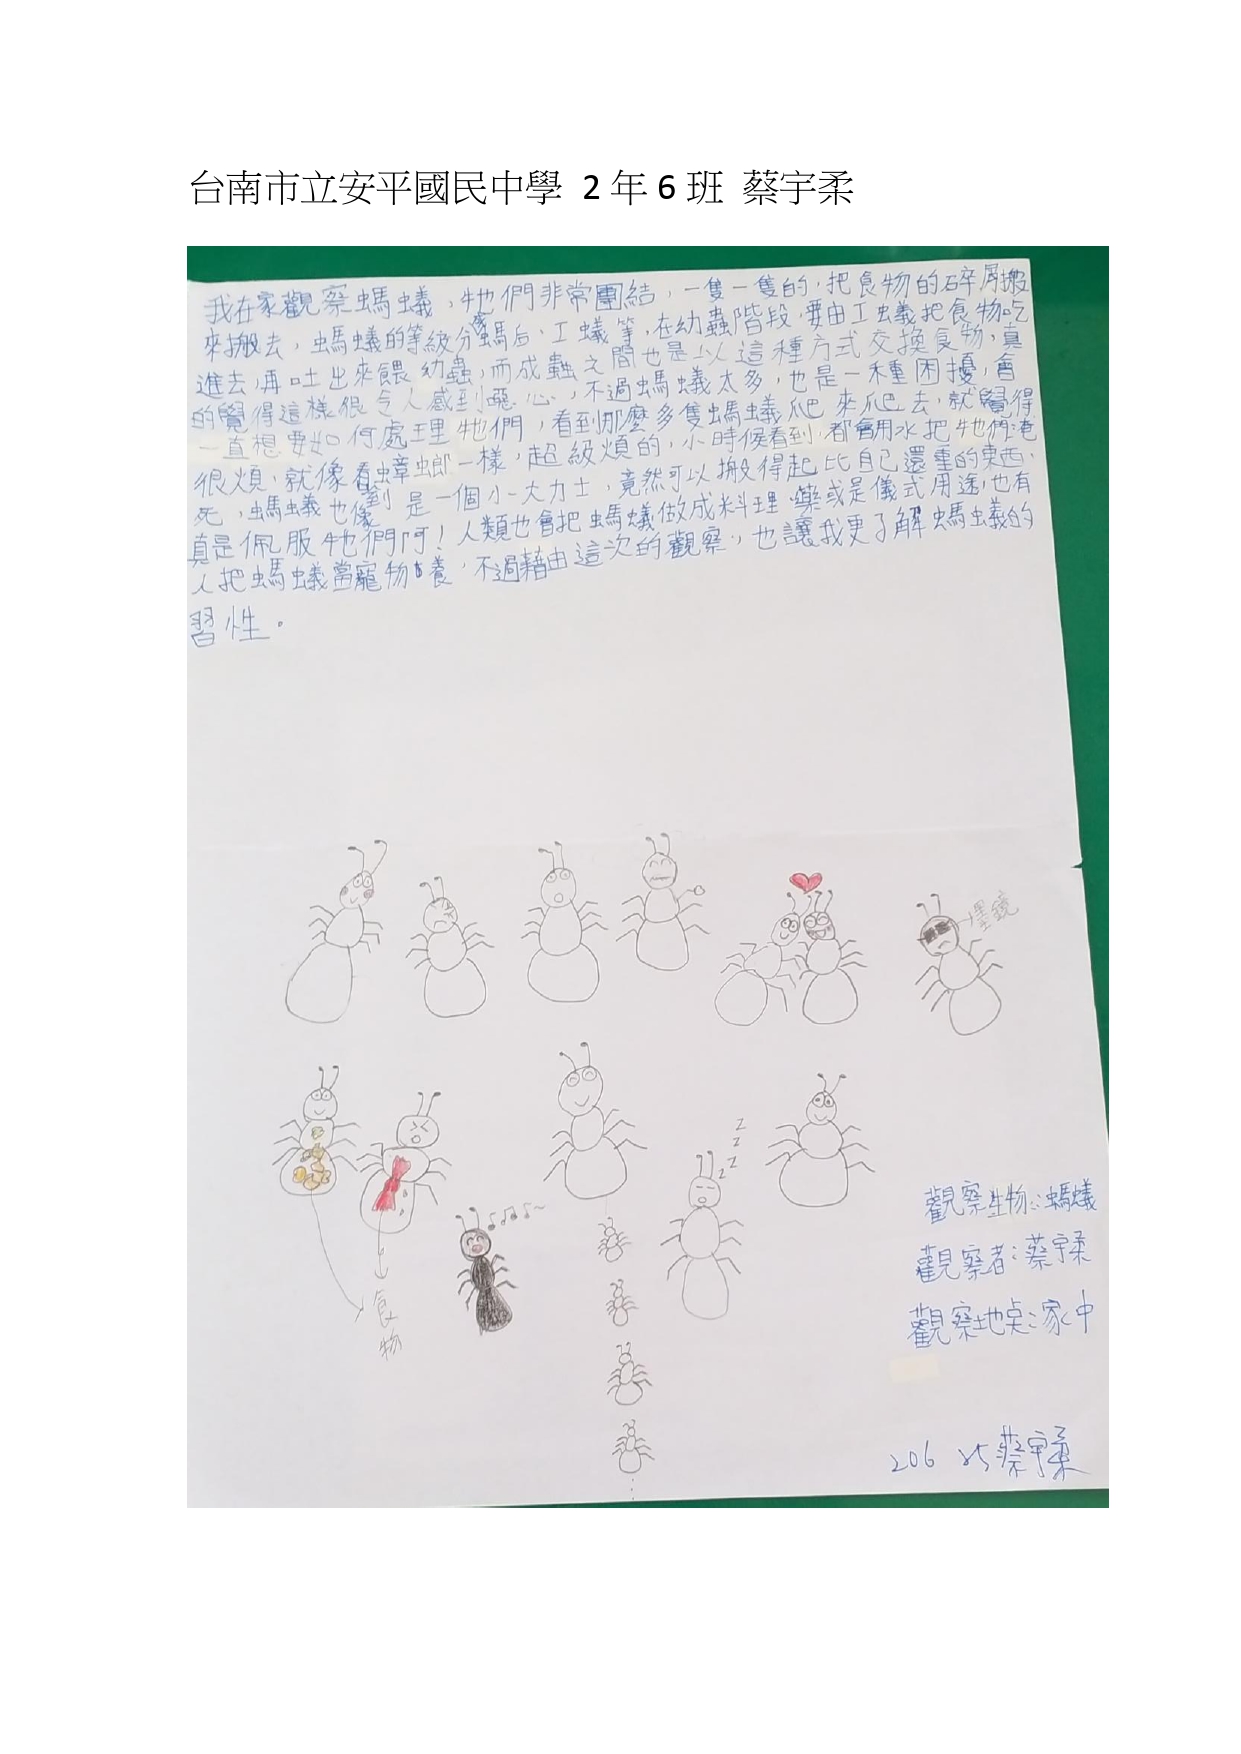 台南市立安平國民中學 2 年 6 班 蔡宇柔
我在家觀察螞蟻，牠們非常團結，一隻一隻的，把食物的碎屑搬
來搬去，螞蟻的等級分為螞后、工蟻等，在幼蟲階段，要由工蟻把食物吃
進去，再吐出來餵幼蟲，而成蟲之間也是以這種方式交換食物，真
的覺得這樣很令人感到噁心，不過螞蟻太多，也是一種困擾，會
一直想要如何處理牠們，看到那麼多隻螞蟻爬來爬去，就覺得
很煩，就像看到蟑螂一樣，超級煩的，小時候看到，都會用水把牠們淹
死，螞蟻也像是一個小大力士，竟然可以搬得起比自己還重的東西，
真是佩服牠們阿！人類也會把螞蟻做成料理、藥或是儀式用途，也有
人把螞蟻當寵物養，不過藉由這次的觀察，也讓我更了解螞蟻的
習性。
墨鏡
z
z
z
z
食物
觀察生物：螞蟻
觀察者：蔡宇柔
觀察地點：家中
206 25 蔡宇柔